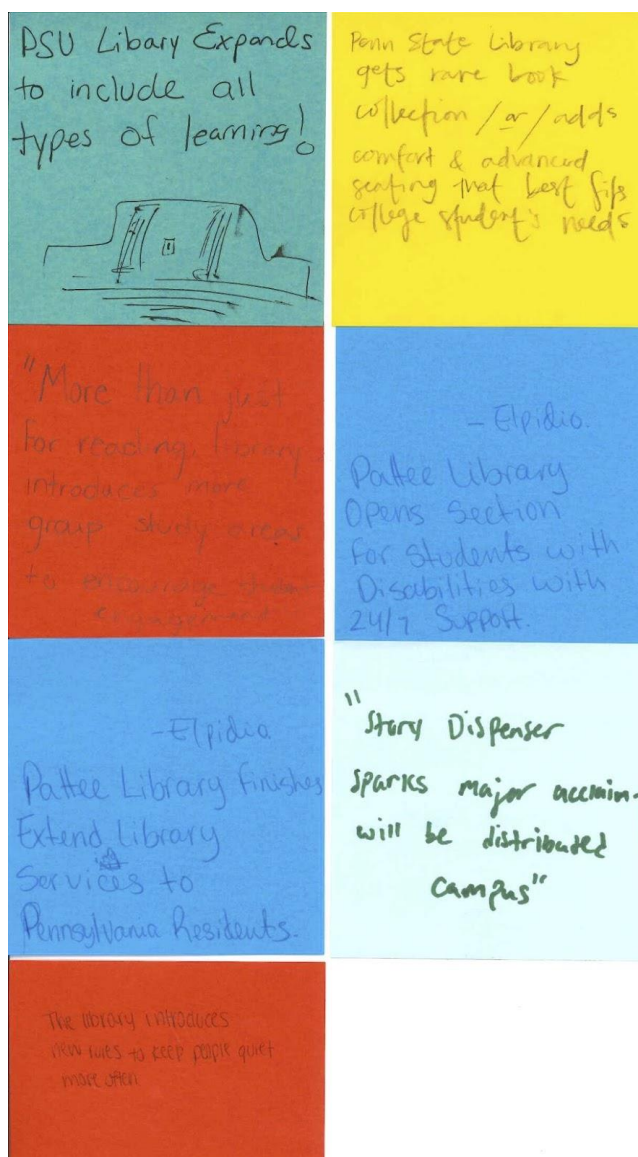 PSU Libary Expands
to include all
types of learning!
Penn State Library
gets rare book
collection / or / adds
comfort & advanced
seating that best fits
college student's needs
"More than just
for reading, library
introduces more
group study areas
to encourage student
engagement
- Elpidio.
Pattee Library
Opens Section
for Students with
Disabilities with
24/7 Support.
- Elpidio
Pattee Library Finishes
Extend Library
Services to
Pennsylvania Residents.
"Story Dispenser
sparks major acclaim-
will be distributed
campus"
The library introduces
new rules to keep people quiet
more often